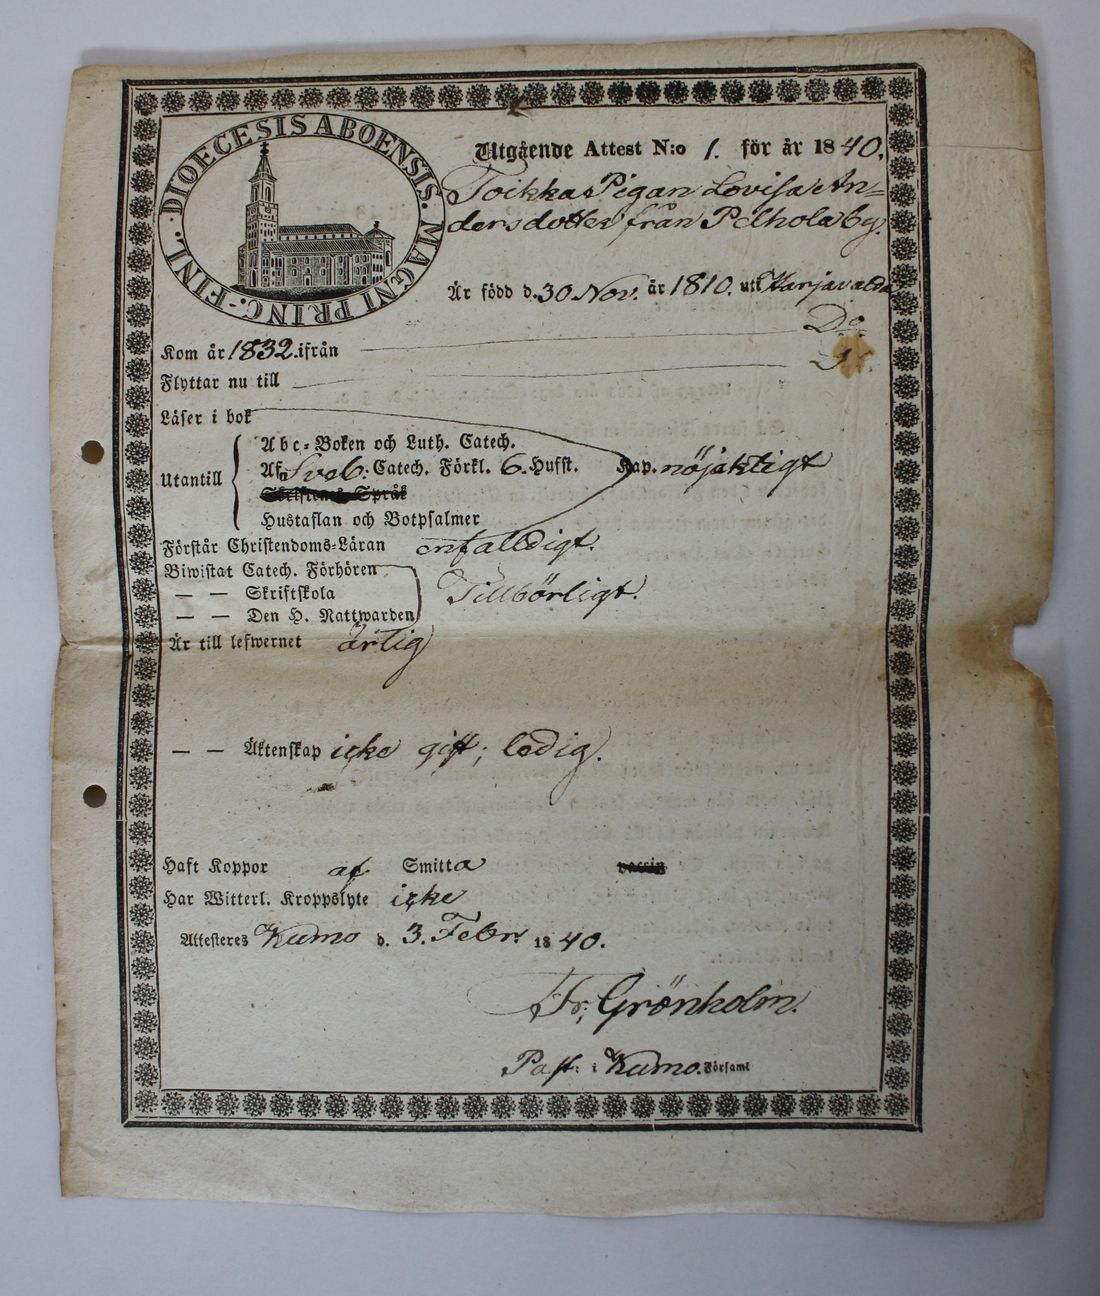 DIOECESIS ABOENSIS. MAGNI PRINC. FINL.
Utgående Attest N:o 1. för år 1840.
Toikka Pigan Lovisa An=
dersdotter från Pelhola by.
Är född d. 30 Nov. år 1810. uti Harjavalda
Kom år 1832. ifrån Do
Flyttar nu till
Läser i bok
Utantill
Abc=Boken och Luth. Catech.
Af Sveb. Catech. Förkl. 6. Hufst. Kap. nöjaktigt
Skriftens Språk
Hustaflan och Botpsalmer
Förstår Christendoms=Läran enfalldigt.
Biwistat Catech. Förhören
— — Skriftskola Tillbörligt.
— — Den H. Nattwarden
Är till lefwernet ärlig
— — Äktenskap icke gift; ledig.
Haft Koppor af Smitta vaccin
Har Witterl. Kroppslyte icke
Attesteres Kumo d. 3. Febr. 1840.
Fr. Grönholm.
Past: i Kumo. Församl